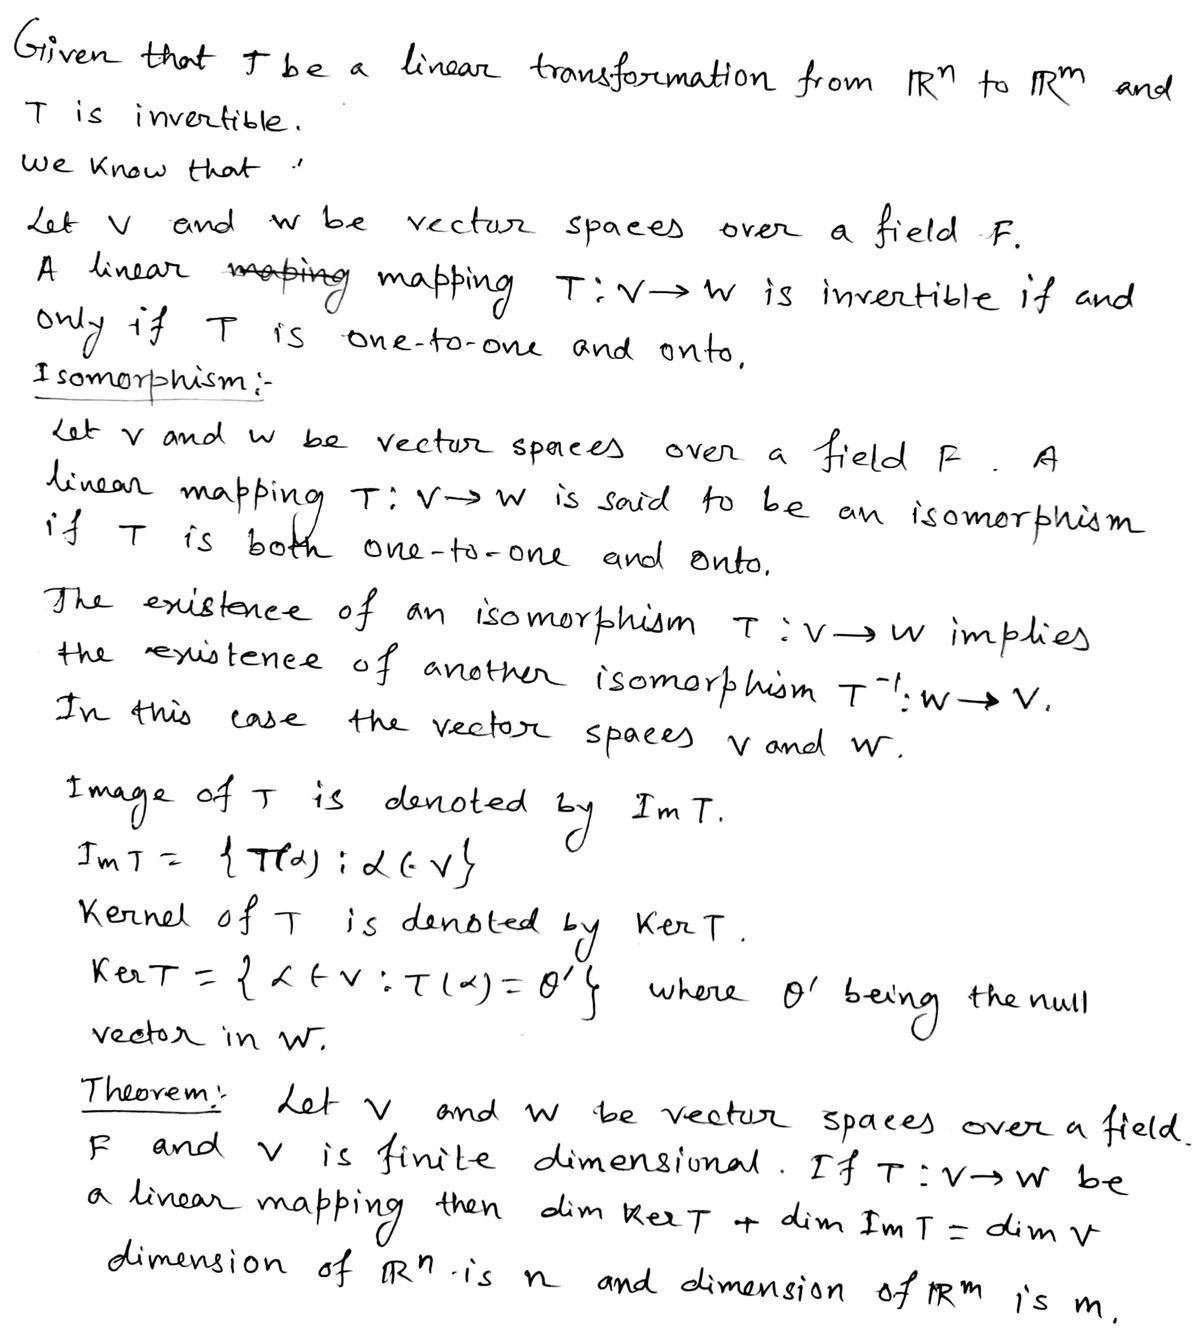 Given that T be a linear transformation from ℝⁿ to ℝᵐ and
T is invertible.
we know that :
Let V and W be vector spaces over a field F.
A linear ~~maping~~ mapping T : V → W is invertible if and
only if T is one-to-one and onto.
Isomorphism :-
Let V and W be vector spaces over a field F. A
linear mapping T : V → W is said to be an isomorphism
if T is both one-to-one and onto.
The existence of an isomorphism T : V → W implies
the existence of another isomorphism T⁻¹ : W → V.
In this case the vector spaces V and W.
Image of T is denoted by Im T.
Im T = { T(α) : α ∈ V }
Kernel of T is denoted by Ker T.
Ker T = { α ∈ V : T(α) = θ' } where θ' being the null
vector in W.
Theorem :- Let V and W be vector spaces over a field.
F and V is finite dimensional. If T : V → W be
a linear mapping then dim Ker T + dim Im T = dim V
dimension of ℝⁿ is n and dimension of ℝᵐ is m.